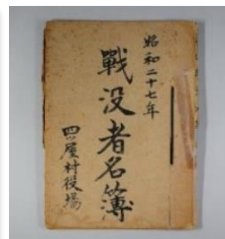 昭和二十七年
戦没者名簿
四ッ屋村役場